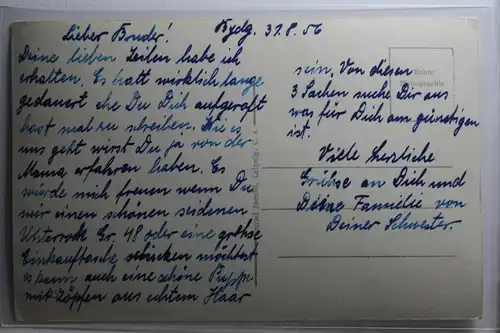 Lieber Bruder!
Bydg. 31.8.56
Deine lieben Zeilen habe ich
erhalten. Es hatt wirklich lange
gedauert ehe Du Dich aufgeraft
hast mal zu schreiben. Wie es
uns geht wirst Du ja von der
Mama erfahren haben. Es
würde mich freuen wenn Du
mir einen schönen seidenen
Unterrock Gr. 48 oder eine grohse
Einkauftasche schicken möchtest
es kann auch eine schöne Puppe
mit Zöpfen aus echtem Haar
sein. Von diesen
3 Sachen suche Dir aus
was für Dich am günstigen
ist.
Viele herzliche
Grühse an Dich und
Deine Familie von
Deiner Schwester.
Leipzig C 1